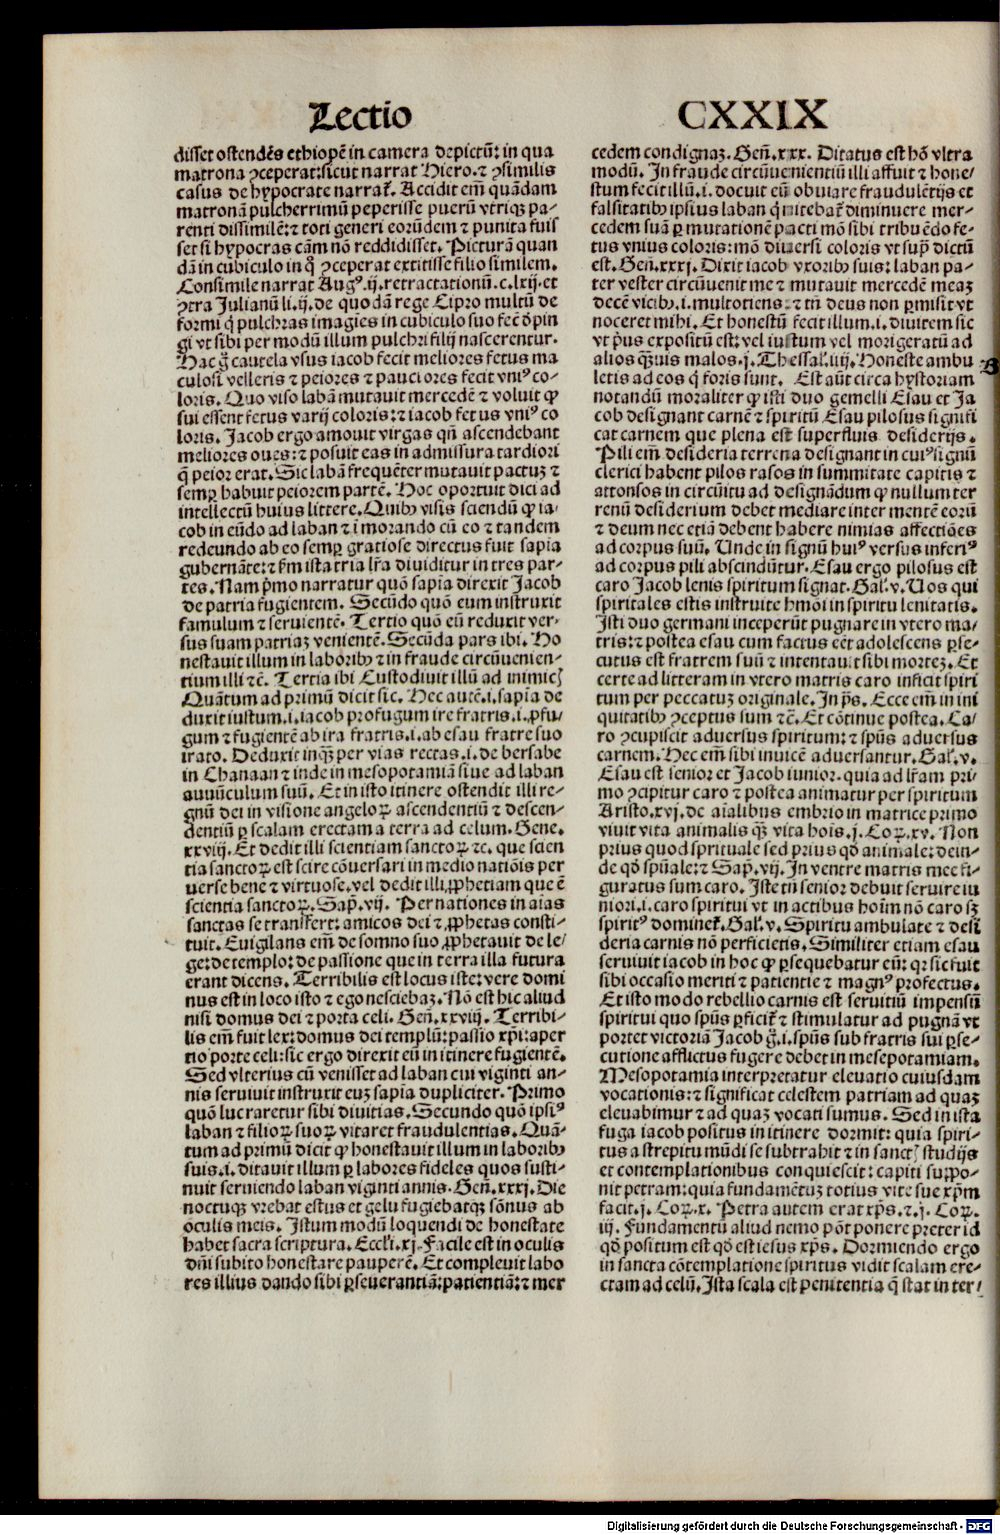 Lectio CXXIX
disset ostendēs ethiopē in camera depictū: in qua
matrona ꝯceperat: sicut narrat Hiero. ⁊ ꝯsimilis
casus de hypocrate narrat̄. Accidit em̄ quādam
matronā pulcherrimū peperisse puerū vtriqꝫ pa-
renti dissimilē: ⁊ toti generi eorūdem ⁊ punita fuis
set si hypocras cām nō reddidisset. Picturā quan
dā in cubiculo in q̊ ꝯceperat extitisse filio similem.
Consimile narrat Augꝰ. ij. retractationū. c. lxij. et
ꝯtra Julianū li. ij. de quodā rege Cipro multū de
formi q̇ pulchras imagies in cubiculo suo fec̄ ōpin
gi vt sibi per modū illum pulchri filij nascerentur.
Hac g̊ cautela vsus iacob fecit meliores fetus ma
culosi velleris ⁊ peiores ⁊ pauciores fecit vniꝰ co-
loris. Quo viso labā mutauit mercedē ⁊ voluit ꝙ
sui essent fetus varij coloris: ⁊ iacob fetus vniꝰ co
loris. Jacob ergo amouit virgas qn̄ ascendebant
meliores oues: ⁊ posuit eas in admissura tardiori
q̄ peior erat. Sic labā frequēter mutauit pactuꝫ ⁊
semꝑ habuit peiorem partē. Hoc oportuit dici ad
intellectū huius littere. Quibꝰ visis sciendū ꝙ ia-
cob in eūdo ad laban ⁊ ī morando cū eo ⁊ tandem
redeundo ab eo semꝑ gratiose directus fuit sapīa
gubernāte: ⁊ ẜm ista tria lr̄a diuiditur in tres par-
tes. Nam pͥmo narratur quō sapīa direxit Jacob
de patria fugientem. Secūdo quō eum instruxit
famulum ⁊ seruientē. Tertio quō eū reduxit ver-
sus suam patriaꝫ venientē. Secūda pars ibi. Ho
nestauit illum in laboribꝰ ⁊ in fraude circūuenien-
tium illi ⁊c̄. Tertia ibi Custodiuit illū ad inimicꝭ
Quātum ad primū dicit sic. Hec autē. i. sapīa de
duxit iustum. i. iacob profugum ire fratris. i. ꝓfu-
gum ⁊ fugientē ab ira fratris. i. ab esau fratre suo
irato. Deduxit inqꝫ per vias rectas. i. de bersabe
in Chanaan ⁊ inde in mesopotamiā siue ad laban
auūculum suū. Et in isto itinere ostendit illi re-
gnū dei in visione angeloꝝ ascendentiū ⁊ descen-
dentiū ꝑ scalam erectam a terra ad celum. Gene.
xxviij. Et dedit illi scientiam sanctoꝝ ⁊c. que scien
tia sanctoꝝ est scire cōuersari in medio natiōis per
uerse bene ⁊ virtuose. vel dedit illi ꝓphetiam que ē
scientia sanctoꝝ. Sap̄. vij. Per nationes in aīas
sanctas se transfert: amicos dei ⁊ ꝓphetas consti-
tuit. Euigilans em̄ de somno suo ꝓphetauit de le-
ge: de templo: de passione que in terra illa futura
erant dicens. Terribilis est locus iste: vere domi
nus est in loco isto ⁊ ego nesciebaꝫ. Nō est hic aliud
nisi domus dei ⁊ porta celi. Gen̄. xxviij. Terribi-
lis em̄ fuit lex: domus dei templū: passio xp̄i: aper
tio porte celi: sic ergo direxit eū in itinere fugientē.
Sed vlterius cū venisset ad laban cui viginti an-
nis seruiuit instruxit euꝫ sapīa dupliciter. Primo
quō lucraretur sibi diuitias. Secundo quō ipsiꝰ
laban ⁊ filioꝝ suoꝝ vitaret fraudulentias. Quā-
tum ad primū dicit ꝙ honestauit illum in laboribꝰ
suis. i. ditauit illum ꝑ labores fideles quos susti-
nuit seruiendo laban viginti annis. Gen̄. xxxj. Die
noctuqꝫ vrebat estus et gelu fugiebatqꝫ sōnus ab
oculis meis. Istum modū loquendi de honestate
habet sacra scriptura. Eccli. xj. Facile est in oculis
dn̄i subito honestare pauperē. Et compleuit labo
res illius dando sibi ꝑseuerantiā: patientiā: ⁊ mer
cedem condignaꝫ. Gen̄. xxx. Ditatus est hō vltra
modū. In fraude circūuenientiū illi affuit ⁊ hone-
stum fecit illū. i. docuit eū obuiare fraudulētijs et
falsitatibꝰ ipsius laban q̇ nitebat̄ diminuere mer-
cedem suā ꝑ mutationē pacti mō sibi tribuēdo fe-
tus vnius coloris: mō diuersi coloris vt sup̄ dictū
est. Gen̄. xxxj. Dixit iacob vxoribꝰ suis: laban pa-
ter vester circūuenit me ⁊ mutauit mercedē meaꝫ
decē vicibꝰ. i. multotiens. ⁊ tn̄ deus non ꝑmisit vt
noceret mihi. Et honestū fecit illum. i. diuitem sic
vt pͥus expositū est: vel iustum vel morigeratū ad
alios qꝫuis malos. j. Thessal̓. iiij. Honeste ambu
letis ad eos q̇ foris sunt. Est aūt circa hystoriam
notandū moraliter ꝙ isti duo gemelli Esau et Ja
cob designant carnē ⁊ spiritū Esau pilosus signifi
cat carnem que plena est superfluis desiderijs.
Pili em̄ desideria terrena designant in cuiꝰ signū
clerici habent pilos rasos in summitate capitis ⁊
attonsos in circūitu ad designādum ꝙ nullum ter
renū desiderium debet mediare inter mentē eorū
⁊ deum nec etiā debent habere nimias affectiōes
ad corpus suū. Unde in signū huiꝰ versus inferiꝰ
ad corpus pili abscindūtur. Esau ergo pilosus est
caro Jacob lenis spiritum signat. Gal̓. v. Uos qui
spiritales estis instruite hmōi in spiritu lenitatis.
Isti duo germani inceperūt pugnare in vtero ma-
tris: ⁊ postea esau cum factus eēt adolescens ꝑse-
cutus est fratrem suū ⁊ intentauit sibi morteꝫ. Et
certe ad litteram in vtero matris caro inficit spiri
tum per peccatuꝫ originale. In ps̄. Ecce em̄ in ini
quitatibꝰ ꝯceptus sum ⁊c̄. Et cōtinue postea. Ca-
ro ꝯcupiscit aduersus spiritum: ⁊ spūs aduersus
carnem. Hec em̄ sibi inuicē aduersantur. Gal̓. v.
Esau est senior et Jacob iunior. quia ad lr̄am pri-
mo ꝯcipitur caro ⁊ postea animatur per spiritum
Aristo. xvj. de aīalibus embrio in matrice primo
viuit vita animalis qꝫ vita hoīs. j. Coꝝ. xv. Non
prius quod sprituale sed prius qd̄ animale: dein-
de qd̄ spūale: ⁊ Sap̄. vij. In ventre matris mee fi-
guratus sum caro. Iste tn̄ senior debuit seruire iu
niori. i. caro spiritui vt in actibus hoīm nō caro sꝫ
spiritꝰ dominet̄. Gal̓. v. Spiritu ambulate ⁊ desi
deria carnis nō perficietis. Similiter etiam esau
seruiuit iacob in hoc ꝙ ꝑsequebatur eū: qꝛ sic fuit
sibi occasio meriti ⁊ patientie ⁊ magnꝰ profectus.
Et isto modo rebellio carnis est seruitiū impensū
spiritui quo spūs ꝑficit̄ ⁊ stimulatur ad pugnā vt
portet victoriā Jacob g̊. i. spūs sub fratris sui ꝑse-
cutione afflictus fugere debet in mesepotamiam.
Mesopotamia interpretatur eleuatio cuiusdam
vocationis: ⁊ significat celestem patriam ad quaꝫ
eleuabimur ⁊ ad quaꝫ vocati sumus. Sed in ista
fuga iacob positus in itinere dormit: quia spiri-
tus a strepitu mūdi se subtrahit ⁊ in sanctꝭ studijs
et contemplationibus conquiescit: capiti suꝓpo-
nit petram: quia fundamētuꝫ totius vite sue xp̄m
facit. j. Coꝝ. x. Petra autem erat xp̄s. ⁊. j. Coꝝ.
iij. Fundamentū aliud nemo pōt ponere preter id
qd̄ positum est qd̄ est iesus xp̄s. Dormiendo ergo
in sancta cōtemplatione spiritus vidit scalam ere-
ctam ad celū. Ista scala est penitentia q̄ stat in ter-
B
Digitalisierung gefördert durch die Deutsche Forschungsgemeinschaft - DFG